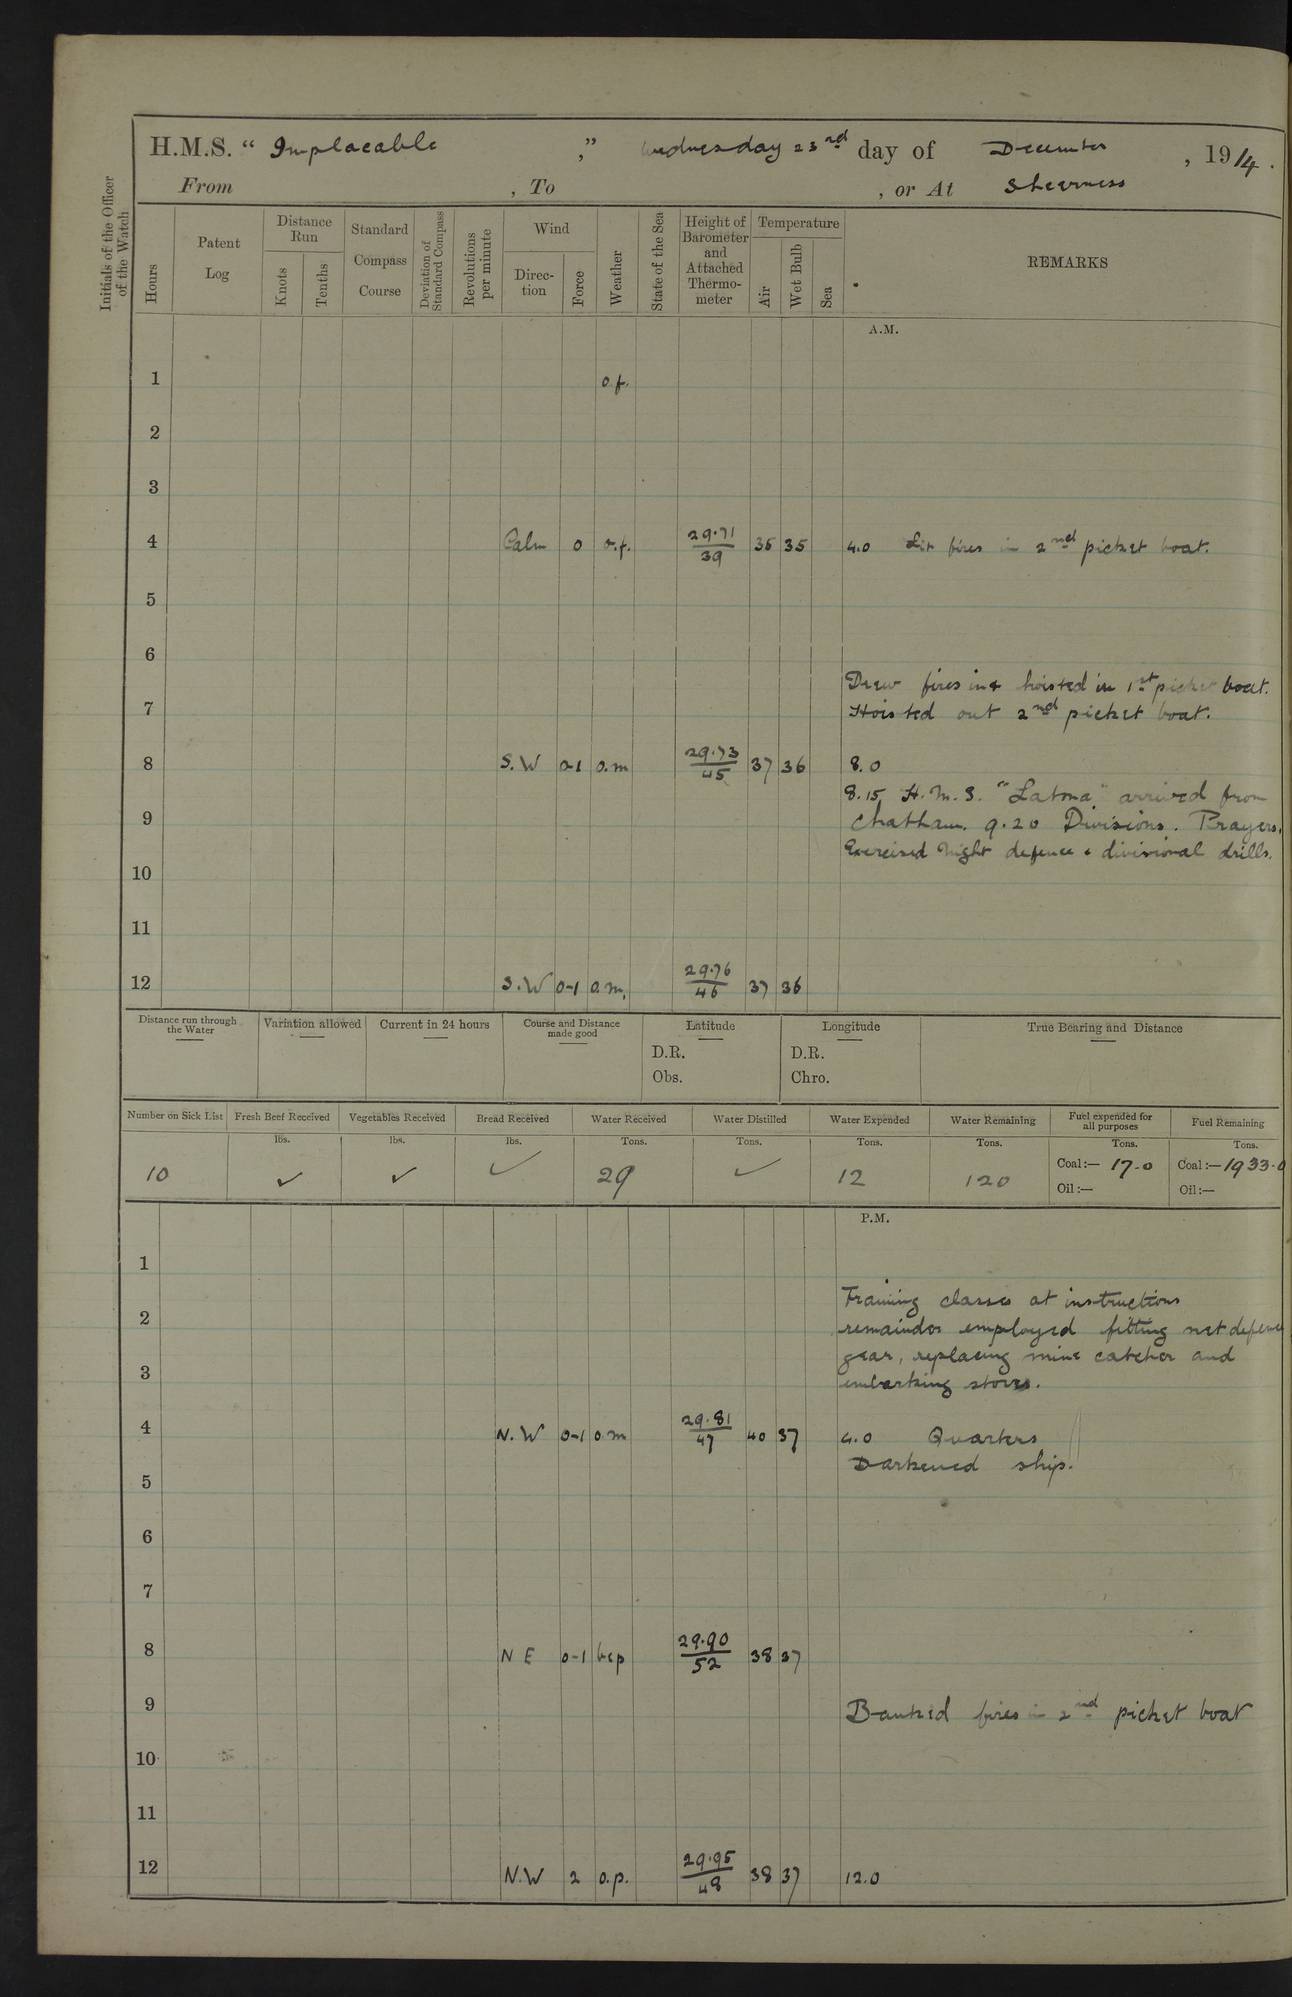 H.M.S. “ Implacable ,” Wednesday 23rd day of December , 1914.
From , To , or At Sheerness
Initials of the Officer of the Watch
Hours
Patent Log
Distance Run
Knots
Tenths
Standard Compass Course
Deviation of Standard Compass
Revolutions per minute
Wind
Direc-tion
Force
Weather
State of the Sea
Height of Barometer and Attached Thermo-meter
Temperature
Air
Wet Bulb
Sea
REMARKS
A.M.
1 o.f.
2
3
4 Calm 0 o.f. 29.71/39 35 4.0 Lit fires in 2nd picket boat.
5
6
Drew fires in & hoisted in 1st picket boat.
7 Hoisted out 2nd picket boat.
8 S.W 0-1 o.m 29.73/45 37 36 8.0
8.15 H.M.S. "Latona" arrived from
9 Chatham. 9.20 Divisions. Prayers.
Exercised Night defence & divisional drills.
10
11
12 S.W 0-1 o.m. 29.76/46 37 36
Distance run through the Water
Variation allowed
Current in 24 hours
Course and Distance made good
Latitude
D.R.
Obs.
Longitude
D.R.
Chro.
True Bearing and Distance
Number on Sick List Fresh Beef Received Vegetables Received Bread Received Water Received Water Distilled Water Expended Water Remaining Fuel expended for all purposes Fuel Remaining
lbs. lbs. lbs. Tons. Tons. Tons. Tons. Tons. Tons.
10 ✓ ✓ ✓ 29 ✓ 12 120 Coal:— 17.0 Coal:— 1933.0
Oil:— Oil:—
P.M.
1
Training classes at instructions
2 remainder employed fitting net defence
gear, replacing mine catcher and
3 embarking stores.
4 N.W 0-1 o.m 29.81/47 40 37 4.0 Quarters
Darkened ship.
5
6
7
8 N E 0-1 bcp 29.90/52 38 37
9 Banked fires in 2nd picket boat
10
11
12 N.W 2 o.p. 29.95/48 38 37 12.0